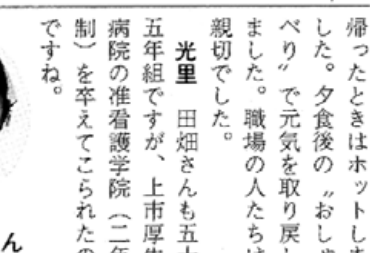 帰ったときはホットしま
した。夕食後の〝おしゃ
べり〟で元気を取り戻し
ました。職場の人たちは
親切でした。
光里　田畑さんも五十
五年組ですが、上市厚生
病院の准看護学院（二年
制）を卒えてこられたの
ですね。
ん